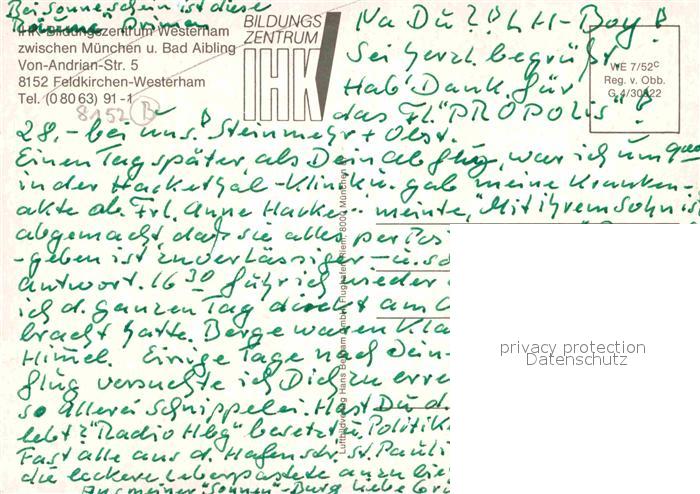 Bei Sonnenschein ist diese
IHK-Bildungszentrum Westerham
zwischen München u. Bad Aibling
Von-Andrian-Str. 5
8152 Feldkirchen-Westerham
Tel. (0 80 63) 91-1
8152
BILDUNGS
ZENTRUM
IHK
WE 7/52c
Reg. v. Obb.
G 4/30822
Na Du? LH-Boy!
Sei herzl. begrüßt.
Hab' Dank für
das Fl. "PROPOLIS"!
28,- bei uns! Steinmehr + Obst.
Einen Tag später, als Dein abflug, war ich um
in der Hackethal-Klinik u. gab meine Kranken-
akte ab. Frl. Anne Harker meinte, "Mit ihrem Sohn is
abgemacht, daß sie alles per Pos
-geben ist zuverlässiger - u. so
antwort. 16 30 fuhr ich wieder
ich d. ganzen Tag direkt am
bracht hatte. Berge waren kla
Himmel. Einige Tage nach Dein-
flug versuchte ich Dich zu erre
so allerei Schnippelei. Hast Du d.
lebt? "Radio Hbg" besetzt u. Politik
Fast alle aus d. Hafenstr. St. Pauli
die leckere Leberpastete
Aus meiner "Sonnen"-Burg liebe Grü
Luftbildverlag Hans Bertram GmbH, Flughafen Riem, 8000 München
privacy protection
Datenschutz